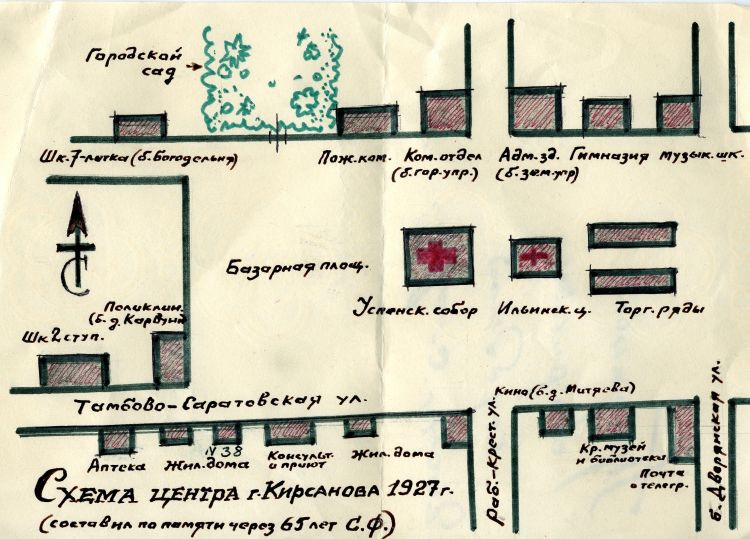 Городской
сад
Шк. 7-летка (б. Богодельня)
Пож. ком.
Ком. отдел
(б. гор. упр.)
Адм. зд.
(б. зем. упр)
Гимназия
музык. шк.
С
Базарная площ.
Успенск. собор
Ильинск. ц.
Торг. ряды
Поликлин.
(б. д. Карвунд
Шк 2 ступ.
Тамбово-Саратовская ул.
Аптека
Жил. дома
N 38
Консульт.
и приют
Жил. дома
Раб.-Крест. ул.
Кино (б. д. Митяева)
Кр. музей
и библиотека
Почта
а телегр.
б. Дворянская ул.
Схема центра г. Кирсанова 1927 г.
(составил по памяти через 65 лет С.Ф.)